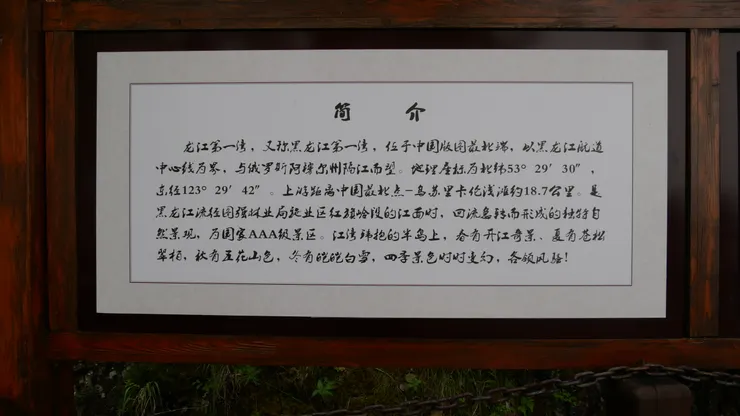 简 介
龙江第一湾，又称黑龙江第一湾，位于中国版图最北端，以黑龙江航道
中心线为界，与俄罗斯阿穆尔州隔江而望。地理座标为北纬53° 29′ 30″，
东经123° 29′ 42″。上游距离中国最北点-乌苏里卡伦浅滩约18.7公里。是
黑龙江流经图强林业局施业区红旗岭段的江面时，回流急转而形成的独特自
然景观，为国家AAA级景区。江湾环抱的半岛上，春有开江奇景、夏有苍松
翠柏，秋有五花山色，冬有皑皑白雪，四季景色时时变幻，各领风骚！